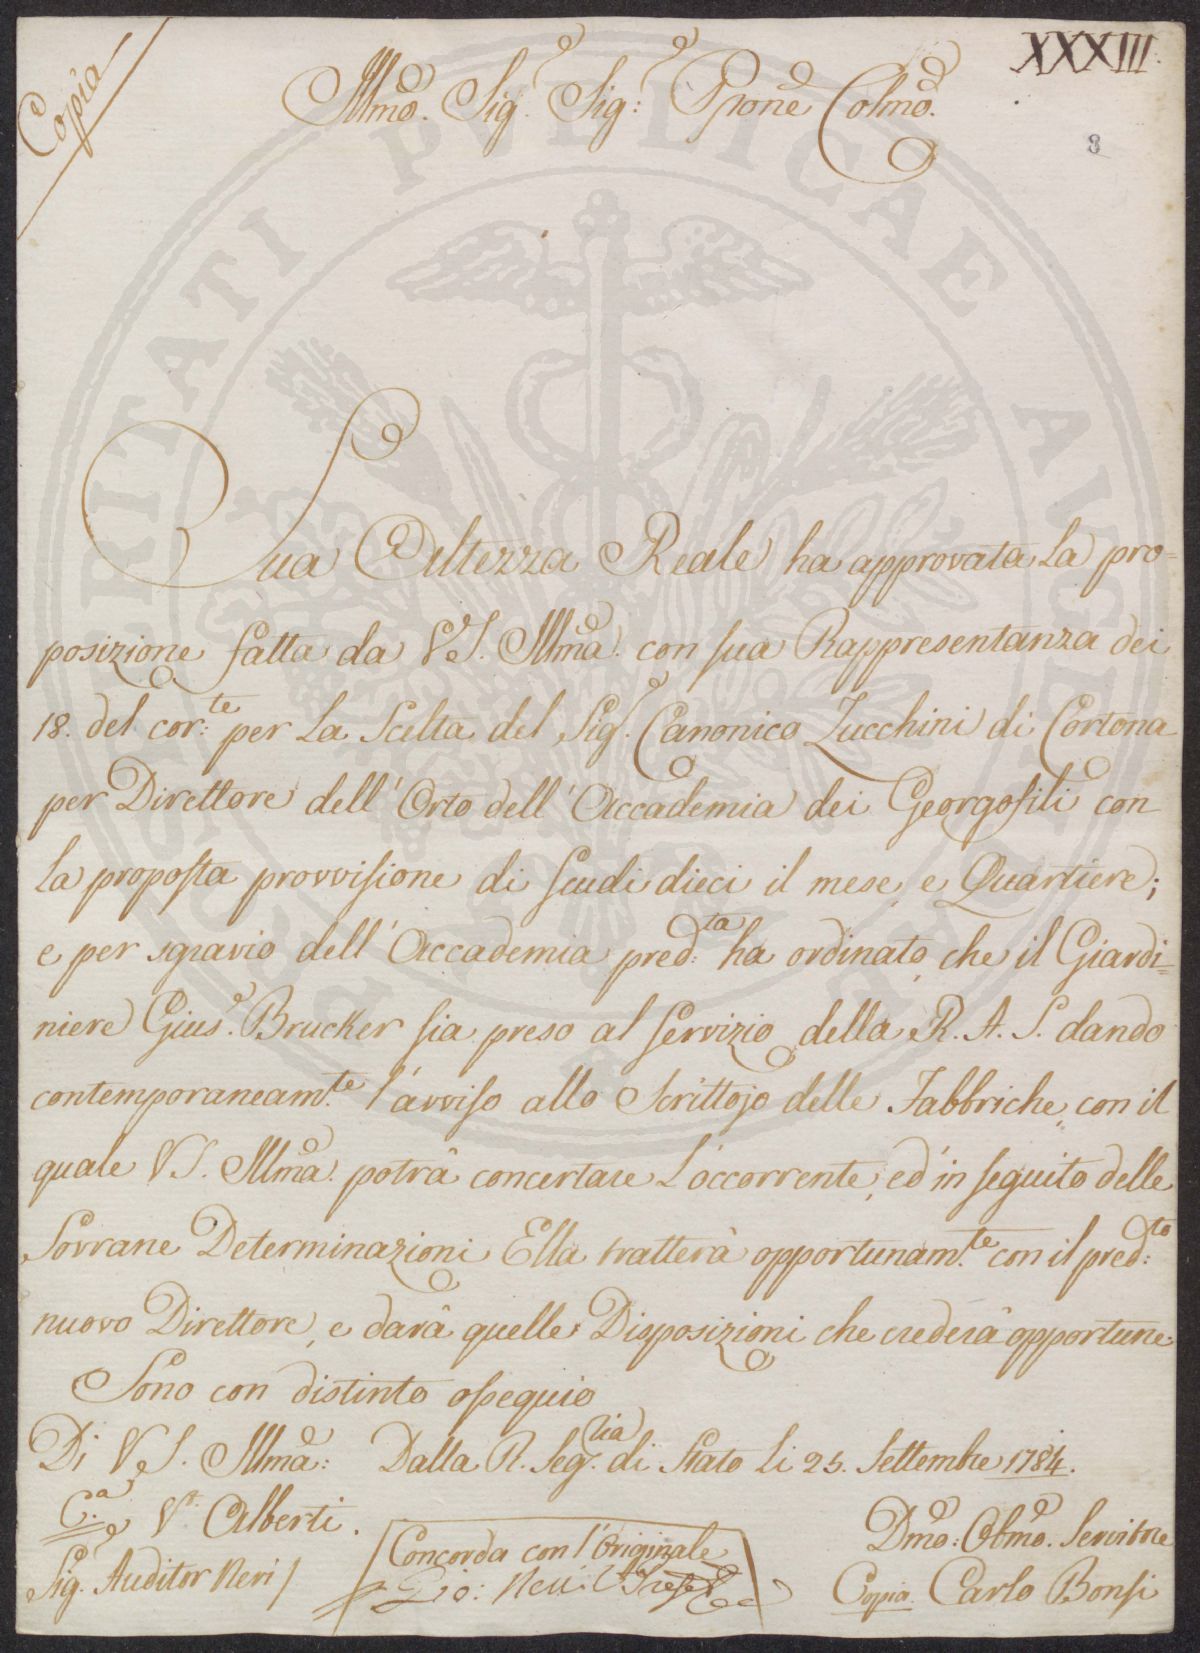 XXXIII.
Copia
Illmo. Sig.e Sig:e Prone Colmo.
8
PROSPERITATI PVBLICAE AVGENDAE
Sua Altezza Reale ha approvata la pro=
posizione fatta da VS. Illma. con sua Rappresentanza dei
18. del cor:te per la Scelta del Sig.e Canonico Zucchini di Cortona
per Direttore dell'Orto dell'Accademia dei Georgofili con
la proposta provvisione di scudi dieci il mese, e Quartiere;
e per sgravio dell'Accademia pred:ta ha ordinato, che il Giardi=
niere Gius.e Brucker sia preso al servizio della R. A. S. dando
contemporaneam.te l'avviso allo Scrittojo delle Fabbriche, con il
quale VS. Illma. potrà concertare l'occorrente, ed in seguito delle
Sovrane Determinazioni Ella tratterà opportunam.te con il pred:to
nuovo Direttore, e darà quelle Disposizioni che crederà opportune.
Sono con distinto ossequio
Di VS. Illma: Dalla R. Seg.ria di Stato li 25. Settembre 1784.
C.a V. Alberti.
Dmo: Obmo. Servitore
Sig. Auditor Neri /
Concorda con l'Originale
Gio: Neri
Copia. Carlo Bonsi